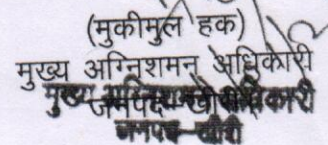 (मुकीमुल हक)
मुख्य अग्निशमन अधिकारी
जनपद-खीरी
मुख्य अग्निशमन अधिकारी
जनपद-खीरी